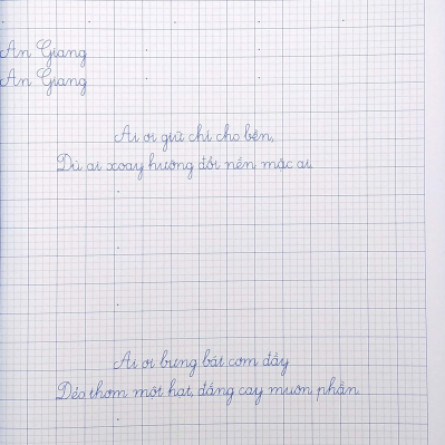 An Giang
An Giang
Ai ơi giữ chí cho bền,
Dù ai xoay hướng đổi nền mặc ai.
Ai ơi bưng bát cơm đầy
Dẻo thơm một hạt, đắng cay muôn phần.